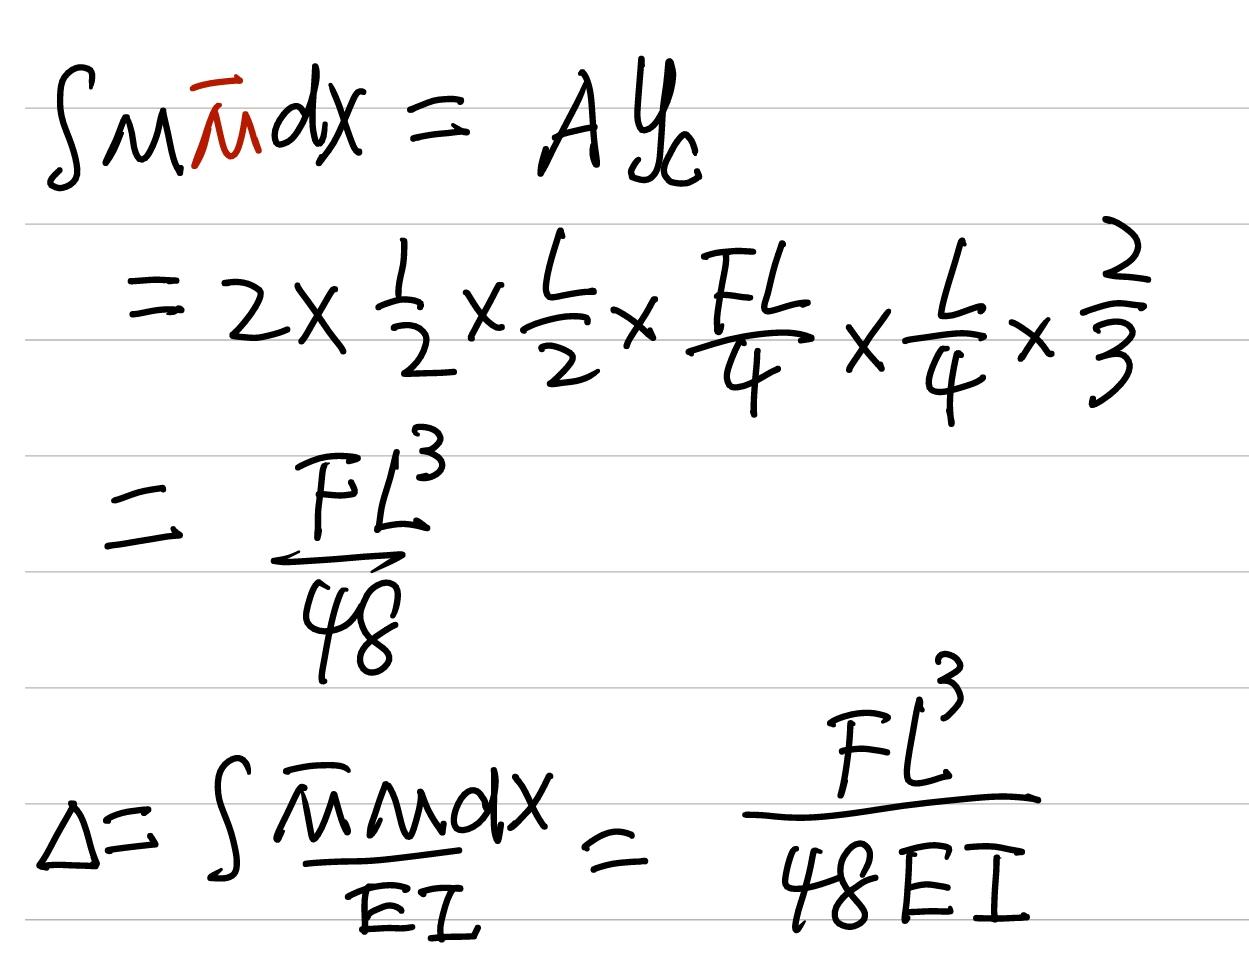 ∫MM̄dx = Ay_c
= 2 × 1/2 × L/2 × FL/4 × L/4 × 2/3
= FL³/48
Δ = ∫M̄Mdx/EI = FL³/48EI